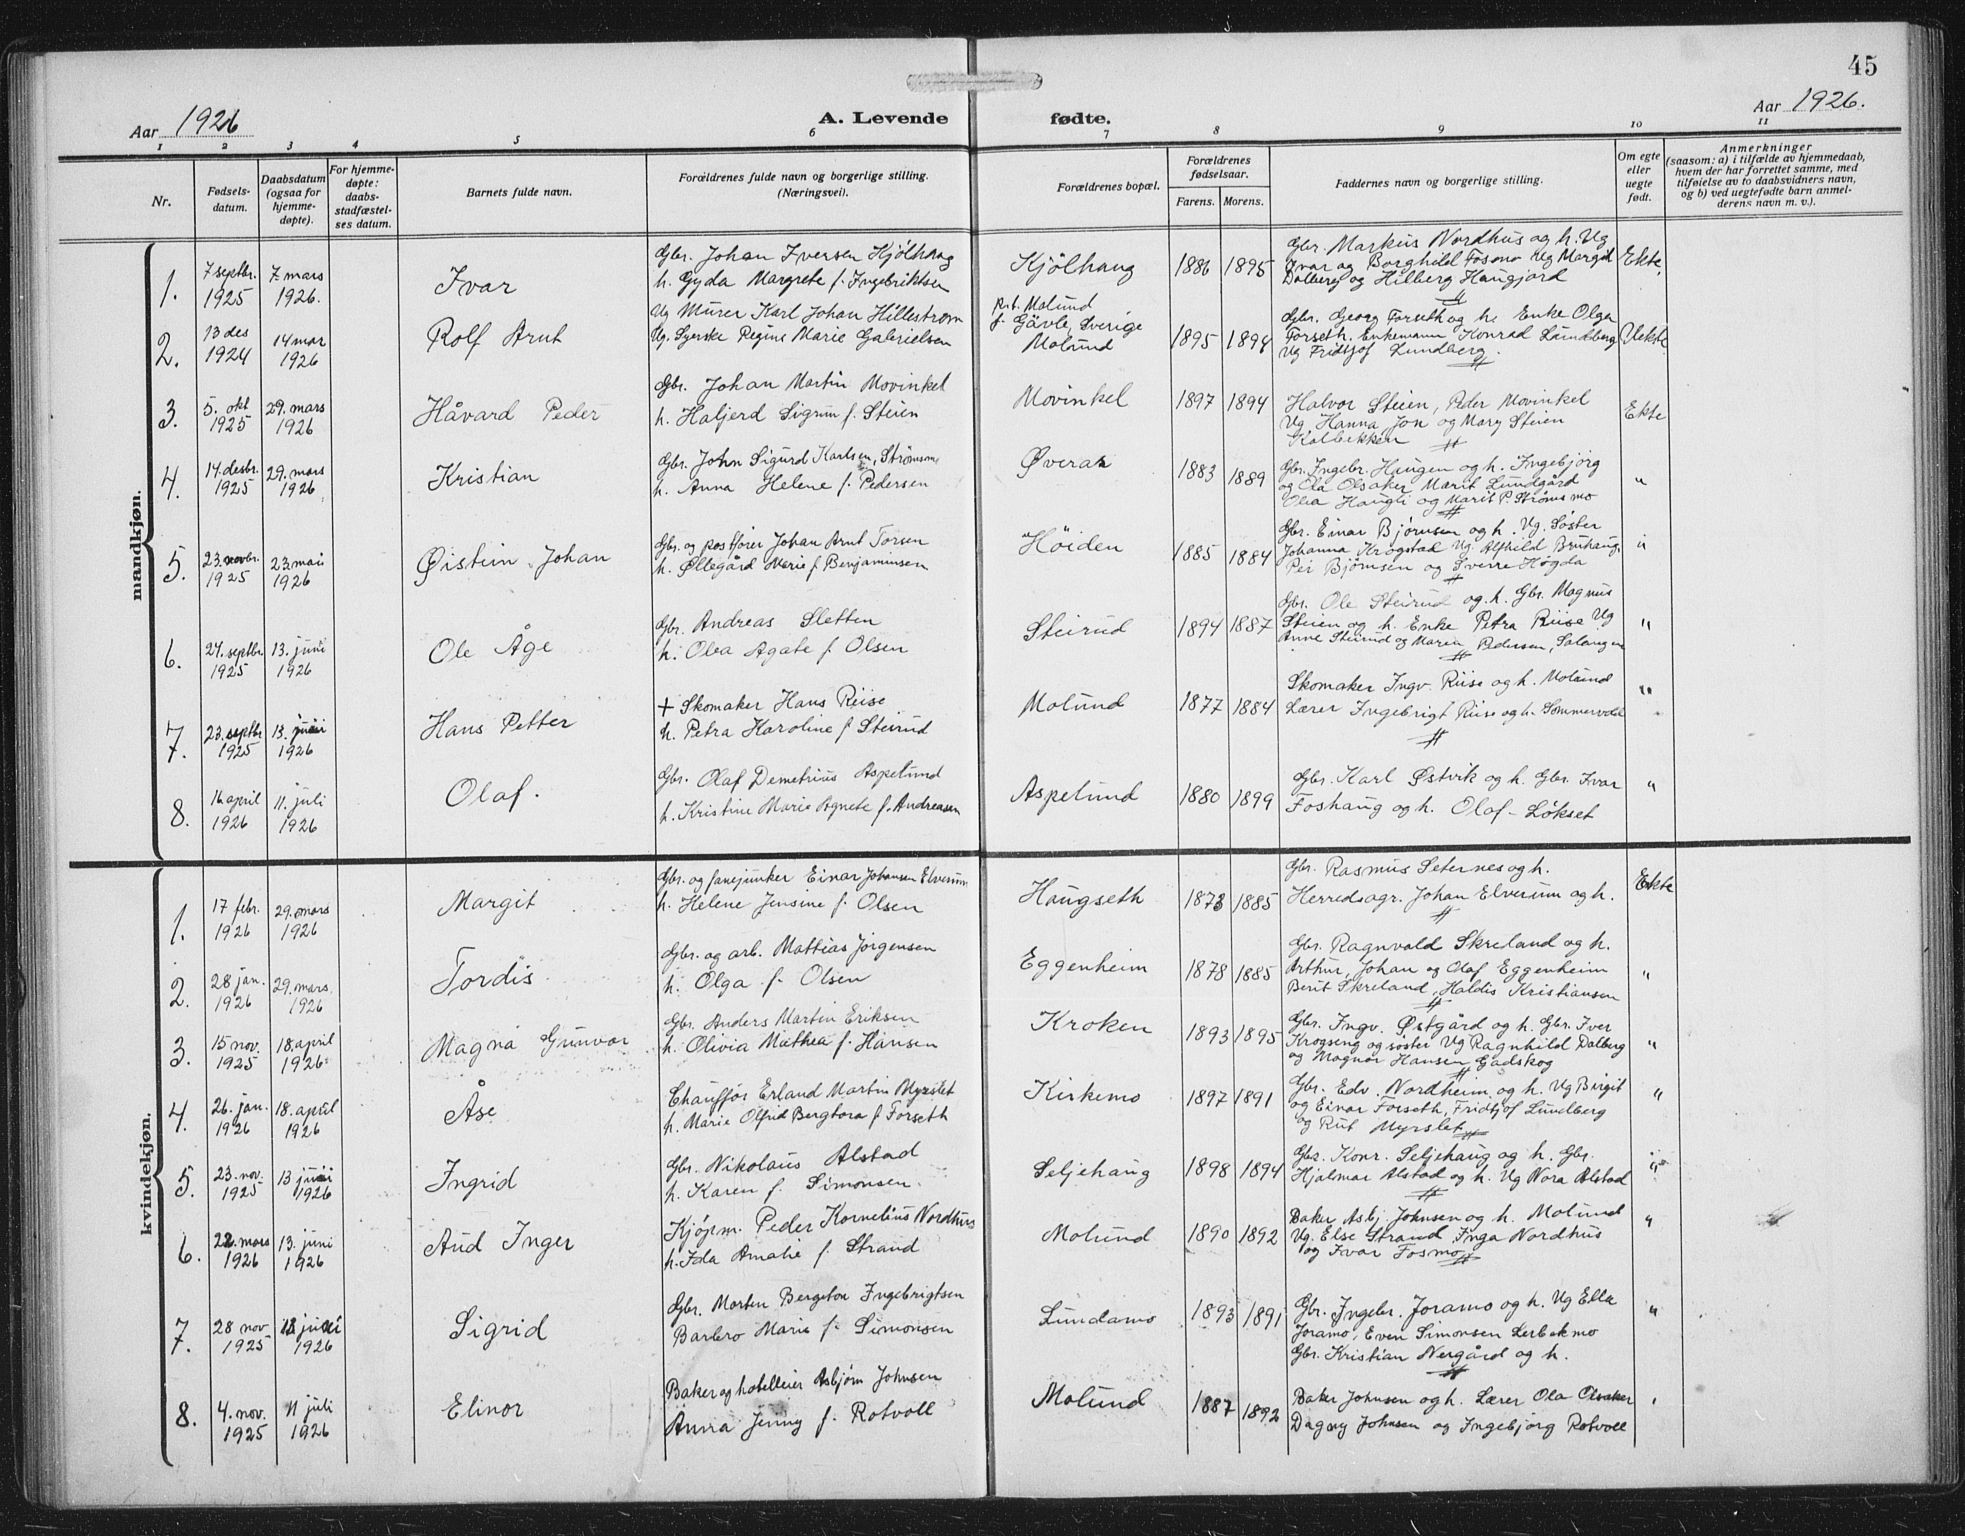 45
Aar 1926
A. Levende fødte.
Aar 1926.
1 2 3 4 5 6 7 8 9 10 11
Nr.
Fødsels-
datum.
Daabsdatum
(ogsaa for
hjemme-
døpte).
For hjemme-
døpte:
daabs-
stadfæstel-
ses datum.
Barnets fulde navn.
Forældrenes fulde navn og borgerlige stilling.
(Næringsvei).
Forældrenes bopæl.
Forældrenes
fødselsaar.
Farens. Morens.
Faddernes navn og borgerlige stilling.
Om egte
eller
uegte
født.
Anmerkninger
(saasom: a) i tilfælde av hjemmedaab,
hvem der har forrettet samme, med
tilføielse av to daabsvidners navn,
og b) ved uegtefødte barn anmel-
derens navn m. v.).
mandkjøn.
1.
7 septbr.
1925
7 mars
1926.
Ivar
Gbr. Johan Iversen Kjölhaug
h. Gyda Margrete f. Ingebriktsen
Kjölhaug
1886 1895
Gbr. Markus Nordhus og h. Ug
Ivar og Borghild Fosmo Ug Margit
Dalberg og Hilberg Haugjord
Ekte.
2.
13 des
1924
14 mar
1926
Rolf Arnt
Ug Murer Karl Johan Hillestrøm
Ug. Syerske Regine Marie Gabrielsen
Molund
f. Gävle, Sverige
Molund
1895 1894
Gbr. Georg Forseth og h. Enke Olga
Forseth. Enkemann Konrad Lundberg
Ug Fridtjof Lundberg.
Uekte.
3.
5. okt
1925
29. mars
1926
Håvard Peder
Gbr. Johan Martin Movinkel
h. Haljerd Sigrun f. Steien
Movinkel
1897 1894
Halvor Steien, Peder Movinkel
Ug Hanna, Jon og Mary Steien
Kolbekken
Ekte
4.
14. desbr.
1925
29. mars
1926
Kristian
Gbr. John Sigurd Karlsen, Strömsmo
h. Anna Helene f. Pedersen
1883 1889
Gbr. Ingebr. Haugen og h. Ingebjørg
og Ola Olsaker Marit Lundgård
Olea Haugli og Marit P. Ströms mo
"
5.
23. novbr.
1925
23. mai
1926
Øistein Johan
Gbr. og postfører Johan Arnt Torsen
h. Øllegård Marie f. Benjaminsen
Höiden
1885 1884
Gbr. Einar Bjørnsen og h. Ug. Søster
Johanna Krogstad Ug. Alfhild Bruhaug,
Per Bjørnsen og Sverre Høgda
"
6.
27. septbr.
1925
13. juni
1926
Ole Åge
Gbr. Andreas Sletten
h. Olea Agate f. Olsen
Steirud
1894 1887
Gbr. Ole Steirud og h. Gbr. Magnus
Steien og h. Enke Petra Riise Ug
Anne Steirud og Maren Pedersen, Salangen
"
7.
23. septbr
1925
13. juni
1926
Hans Petter
+ Skomaker Hans Riise
h. Petra Karoline f. Steirud
Molund
1877 1884
Skomaker Ingv. Riise og h. Molund
Lærer Ingebrigt Riise og h. Sommervold
"
8.
16. april
1926
11. juli
1926
Olaf.
Gbr. Olaf Demetrius Aspelund
h. Kristine Marie Agnete f. Andreassen
Aspelund
1880 1899
Gbr. Karl Østvik og h. Gbr. Ivar
Foshaug og h. Olaf Lökset
"
kvindekjøn.
1.
17 febr.
1926
29. mars
1926
Margit
Gbr. og fanejunker Einar Johansen Elverum
h. Helene Jensine f. Olsen
Haugseth
1873 1885
Gbr. Rasmus Seternes og h.
Herredsagr. Johan Elverum og h.
Ekte
2.
28 jan.
1926
29. mars.
1926
Tordis
Gbr. og arb. Mattias Jørgensen
h. Olga f. Olsen
Eggenheim
1878 1885
Gbr. Ragnvald Skreland og h.
Arthur, Johan og Olaf Eggenheim
Berit Skreland, Haldis Kristiansen
"
3.
15 nov.
1925
18. april
1926
Magna Gunvor
Gbr. Anders Martin Eriksen
h. Olivia Mathea f. Hansen
Kroken
1893 1895
Gbr. Ingv. Østgård og h. Gbr. Iver
Krogseng og søster Ug Ragnhild Dalberg
og Magnor Hansen, Gadskog
"
4.
26. jan.
1926
18. april
1926
Åse
Chauffør Erland Martin Myrslet
h. Marie Olfrid Bergtora f Forseth
Kirkemo
1897 1891
Gbr. Edv. Nordheim og h. Ug Birgit
og Einar Forseth, Fridtjof Lundberg
og Rut Myrslet
"
5.
23. nov.
1925
13 juni
1926
Ingrid
Gbr. Nikolaus Alstad
h. Karen f. Simonsen.
Seljehaug
1898 1894
Gbr. Konr. Seljehaug og h. Gbr.
Hjalmar Alstad og h. Ug Nora Alstad
"
6.
22. mars
1926
13. juni
1926
Aud Inger
Kjøpm. Peder Kornelius Nordhus
h. Ida Amalie f. Strand
Molund
1890 1892
Baker Asbj. Johnsen og h. Molund
Ug. Else Strand, Inga Nordhus
og Ivar Fosmo
"
7.
28 nov
1925
juni
1926
Sigrid
Gbr. Morten Bergeton Ingebrigtsen
Barbro Marie f. Simonsen
Lundamo
1893 1891
Gbr. Ingebr. Joramo og h. Ug Ella
Joramo, Even Simonsen Lerbekmo
Gbr. Kristian Nergård og h.
"
8.
4. nov.
1925
11 juli
1926
Elinor
Baker og hotelleier Asbjørn Johnsen
Anna Jenny f. Rotvoll
Molund
1887 1892
Baker Johnsen og h. Lærer Ola Olsaker
Dagny Johnsen og Ingebjörg Rotvoll
"